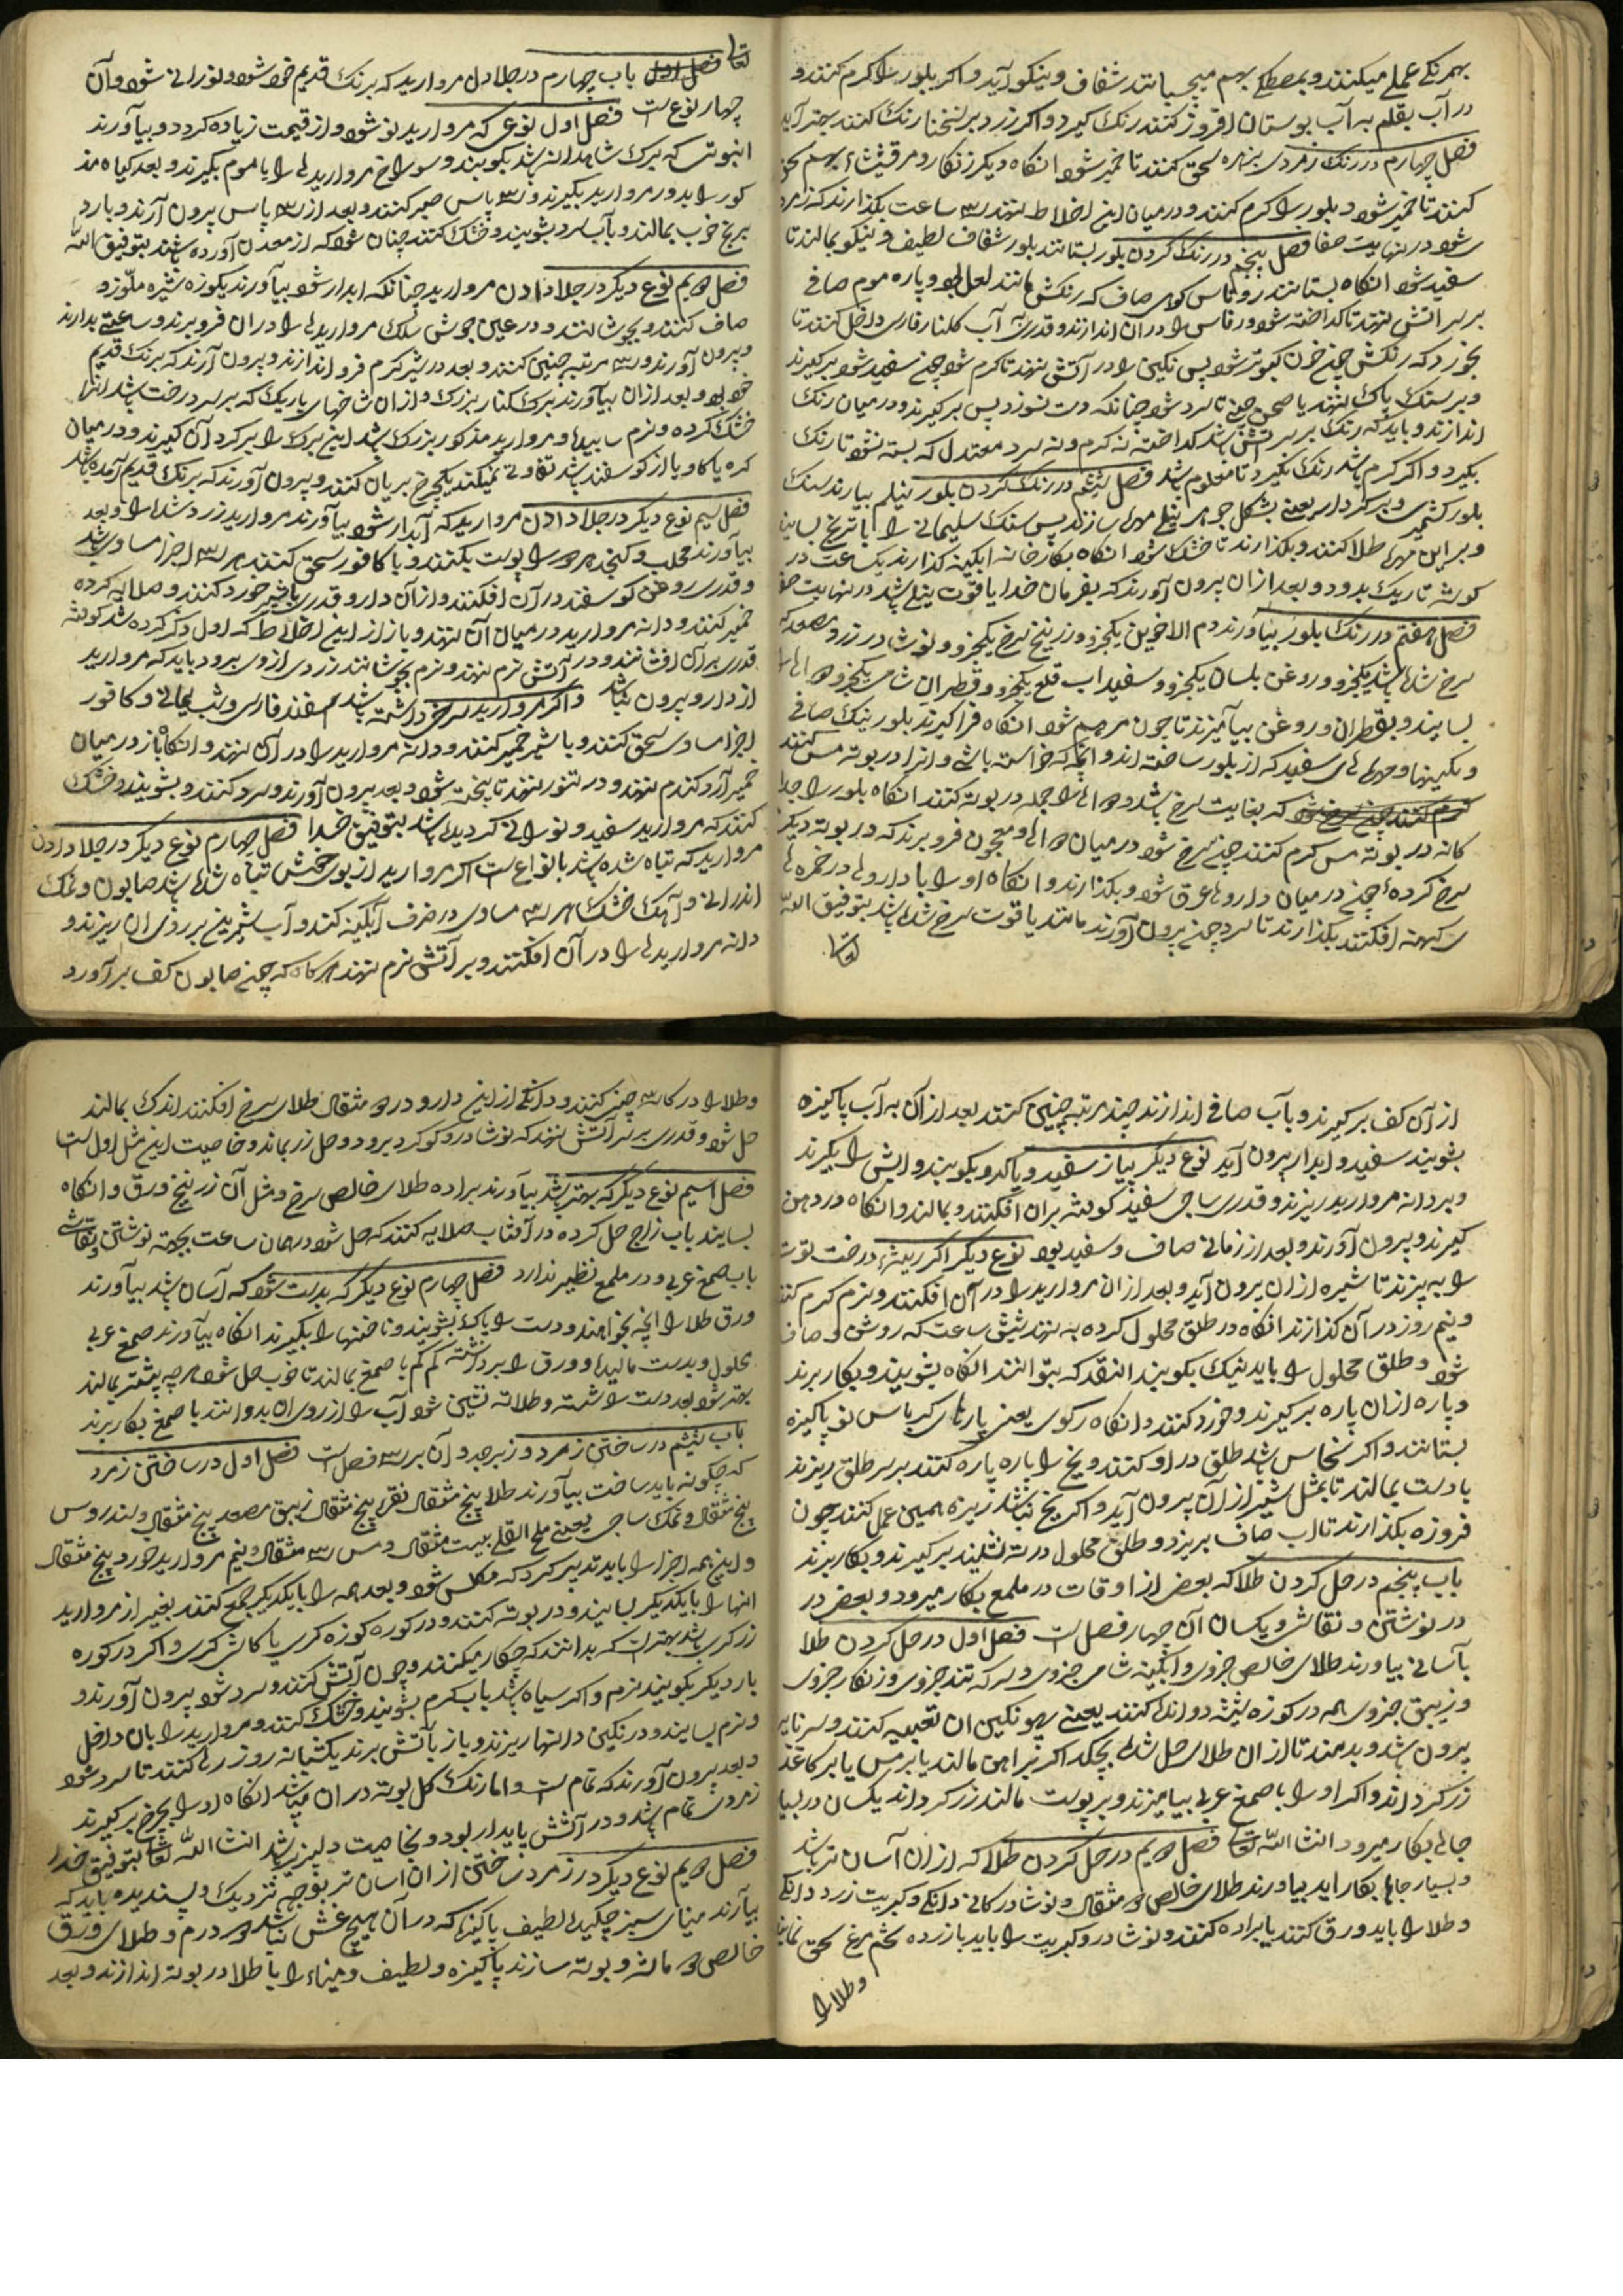 بهم نکی عملی میکنند و بمصطکی بهم میچسپانند شفاف و نیکو آید و اکر بلور را کرم کنند و
در آب بقلم به آب بوستان افروز کنند رنک کیرد و اکر زرد بر لنخنا رنک کنند بهتر آید
فصل چهارم در رنک زمردی سحق کنند تا خمیر شود انکاه دیکر زنکار و مرقیشا بهم سحق
کنند تا خمیر شود و بلور را کرم کنند و در میان این اخلاط نهند سه ساعت بکذارند که زمرد
شود در نهایت صفا فصل پنجم در رنک کردن بلور بستانند بلور شفاف لطیف و نیکو بمالند تا
سفید شود انکاه بستانند روناس کوهی صاف که رنکش مانند لعل بود و پاره موم صافی
بر سر اتش نهند تا کداخته شود و روناس را در آن اندازند و قدری آب کلنار فارسی داخل کنند تا
بخورد که رنکش چون خون کبوتر شود پس نکین را در آتش نهند تا کرم شود چون سفید شود بر کیرند
و بر سنک پاک نهند یا صحن چینی تا سرد شود چنانکه دست نسوزد پس بر کیرند و در میان رنک
اندازند و باید که رنک بر سر اتش باشد کداخته نه کرم و نه سرد معتدل که بسته نشود تا رنک
بکیرد و اکر کرم باشد رنک بکیرد تا معلوم باشد فصل ششم در رنک کردن بلور نیلم بیارند سنک
بلور کشمیری و بر کردارند یعنی بشکل جوهری نیلم مهرها سازند پس سنک سلیمانی را با تریخ بسایند
و بر این مهرها طلا کنند و بکذارند تا خشک شود انکاه بکارخانه ابکینه کذارند یک ساعت در
کوشه تاریک بدود و بعد از ان بیرون آورند که بفرمان خدا یاقوت نیلی باشد در نهایت صفا
فصل هفتم در رنک بلور بیاورند دم الاخوین یکجزو و زرنیخ سرخ یکجزو و نوشادر زرد مصعد که
سرخ شده باشد یکجزو و روغن بلسان یکجزو و سفیداب قلع یکجزو و قطران شامی یکجزو
بسایند و بقطران و روغن بیامیزند تا چون مرهم شود انکاه فرا کیرند بلور نیک صافی
و نکینها و مهره های سفید که از بلور ساخته اند و انچه که خواسته باشی و انرا در بوته مس کنند
کرم کنند چون سرخ شود که بغایت سرخ باشد و دوائها جمله در بوته کنند انکاه بلور را جدا
کانه در بوته مس کرم کنند چون سرخ شود در میان دوائی معجون فرو برند که در بوته دیکر
سرخ کرده چون در میان داروها غرق شود و بکذارند و انکاه او را با داروها در خمرهٔ
سرکهنه افکنند بکذارند تا سرد چون بیرون آورند مانند یاقوت سرخ شده باشد بتوفیق الله
تعالی
تعالی فصل اول باب چهارم در جلا دادن مروارید که برنک قدیم خود شود و نورانی شود و آن
چهار نوع است فصل اول نوعی که مروارید نو شود و از قیمت زیاده کردد و بیاورند
انبوتس که برک شاهدانه باشد بکوبند و سوراخ مروارید ها را با موم بکیرند و بعد کیاه مذ
کور را بدور مروارید بکیرند و سه پاس صبر کنند و بعد از سه پاس بیرون آرند و بارد
برنج خوب بمالند و بآب سرد بشویند و خشک کنند چنان شود که از معدن آورده باشند بتوفیق الله
فصل دویم نوع دیکر در جلا دادن مروارید چنانکه ابدار شود بیاورند یکوزه شیره ملوزو
صاف کنند و بجوشانند و در عین جوش سلک مروارید ها را در ان فرو برند و ساعتی بدارند
و بیرون آورند و سه مرتبه چنین کنند و بعد در شیر کرم فرو اندازند و بیرون آرند که برنک قدیم
خود بود و بعد از ان بیاورند برک کنار بزرک و از ان شاخهای باریک که بر سر درخت باشد انرا
خشک کرده و نرم سایند و مروارید مذکور بزرک باشد این برک را بر کرد آن کیرند و در میان
کره یا کاو یا از کوسفند باشد تفاوتی نمیکند یکچرخ بریان کنند و بیرون آورند که برنک قدیم آمده باشد
فصل سیم نوع دیکر در جلا دادن مروارید که آبدار شود بیاورند مروارید زرد شده را و بعد
بیاورند محلب و کنجد هر دو را پوست بکنند و با کافور سحق کنند هر سه اجزا مساوی باشد
و قدری روغن کوسفند در آن افکنند و از آن دارو قدری با شیر خورد کنند و صلایه کرده
خمیر کنند و دانه مروارید در میان آن نهند و باز از این اخلاط که اول ذکر کرده شد کوفته
قدری بر آن افشانند و در آتش نرم نهند و نرم بجوشانند زردی از وی برود باید که مروارید
از دارو بیرون نباشد و اکر مروارید سرخی داشته باشد اسفند فارسی و شب یمانی و کافور
اجزا مساوی سحق کنند و با شیر خمیر کنند و دانه مروارید را در آن نهند و انکاه باز در میان
خمیر آرد کندم نهند و در تنور نهند تا پخته شود و بعد بیرون آورند و سرد کنند و بشویند و خشک
کنند که مروارید سفید و نورانی کردیده باشد بتوفیق خدا فصل چهارم نوع دیکر در جلا دادن
مروارید که تباه شده باشد بانواع است اکر مروارید از بوی خوش تباه شده باشد صابون و نمک
اندرانی و آهک خشک هر سه مساوی در ظرف آبکینه کنند و آب شیرین بر روی ان ریزند و
دانه مروارید ها را در آن افکنند و بر آتش نرم نهند هر کاه که چون صابون کف بر آورد
از آن کف بر کیرند و بآب صافی اندازند چند مرتبه چنین کنند بعد از آن به آب پاکیزه
بشویند سفید و ابدار بیرون آید نوع دیکر پیاز سفید و پاک و بکوبند و ابش را بکیرند
و بر دانه مروارید ریزند و قدری ساجی سفید کوفته بران افکنند و بمالند و انکاه در دهن
کیرند و بیرون آورند و بعد از زمانی صاف و سفید بود نوع دیکر اکر ریشهٔ درخت توت
را به پزند تا شیره از ان بیرون آید و بعد از ان مروارید را در آن افکنند و نرم کرم کنند
و نیم روز در آن کذارند انکاه در طلق محلول کرده به نهند شش ساعت که روشن و صاف
شود و طلق محلول را باید نیک بکوبند انقدر که بتوانند انکاه بشویند و بکار برند
و پاره از ان پاره بر کیرند و خورد کنند و انکاه رکوی یعنی پارهای کرباس نو پاکیزه
بستانند و اکر نخاس باشد طلق در او کنند و یخ را پاره پاره کنند بر سر طلق ریزند
با دست بمالند تا بمثل شیر از آن بیرون آید و اکر یخ نباشد ریزه همین عمل کنند چون
فروزه بکذارند تا اب صاف بریزد و طلق محلول در ته نشیند بر کیرند و بکار برند
باب پنجم در حل کردن طلا که بعض از اوقات در ملمع بکار میرود و بعض در
در نوشتن و نقاشی و یکسان آن چهار فصل است فصل اول در حل کردن طلا
بآسانی بیاورند طلای خالص جزوی و ابکینه شامی جزوی و سرکه تند جزوی و زنکار جزوی
و زیبق جزوی همه در کوزه شیشه دو اندک کنند یعنی چو نکین ان تعبیه کنند و سر نایه
بیرون باشد و بدمند تا از ان طلای حل شده بچکد اکر بر اهن مالند یا بر مس یا بر کاغذ
زر کرداند و اکر او را با صمغ عربی بیامیزند و بر پوست مالند زر کرداند یکسان در بسیار
جائی بکار میرود انشا الله تعالی فصل دویم در حل کردن طلا که از ان آسان تر باشد
و بسیار جاها بکار اید بیاورند طلای خالص دو مثقال و نوشادر کانی دانکی و کبریت زرد دانکی
و طلا را باید ورق کنند یا براده کنند و نوشادر و کبریت را باید با زرده تخم مرغ سحق نمایند
و طلا را
و طلا را در کاسه چینی کنند و دانکی از این دارو در دو مثقال طلای سرخ افکنند اندک بمالند
حل شود و قدری بر سر آتش نهند که نوشادر و کوکرد برود و حل زر بماند و خاصیت این مثل اول است
فصل سیم نوع دیکر که بهتر باشد بیاورند براده طلای خالص سرخ و مثل آن زرنیخ ورق و انکاه
بسایند باب زاج حل کرده در آفتاب صلایه کنند که حل شود در همان ساعت بجهته نوشتن و نقاشی
باب صمغ عربی و در ملمع نظیر ندارد فصل چهارم نوع دیکر که بدست شود که آسان باشد بیاورند
ورق طلا را انچه بخواهند و دست را پاک بشویند و ناخنها را بکیرند انکاه بیاورند صمغ عربی
محلول و بدست مالیده و ورق را برداشته کم کم با صمغ بمالند تا خوب حل شود هر چه بیشتر بمالند
بهتر شود بعد دست را شسته و طلا ته نشین شود آب را از روی ان بدوانند با صمغ بکار برند
باب ششم در ساختن زمرد و زبرجد و آن بر سه فصل است فصل اول در ساختن زمرد
که چکونه باید ساخت بیاورند طلا پنج مثقال نقره پنج مثقال زیبق مصعد پنج مثقال و سندروس
پنج مثقال و نمک ساجی یعنی ملح القلی بیست مثقال و مس سه مثقال و نیم مروارید خورد پنج مثقال
و این همه اجزا را باید تدبیر کرد که مکلس شود و بعد همه را با یکدیکر جمع کنند بغیر از مروارید
انها را با یکدیکر بسایند و در بوته کنند و در کوره کوزه کری یا کاشی کری و اکر در کوره
زرکری باشد بهتر است که بدانند که چکار میکنند و چون آتش کنند و سرد شود بیرون آورند و
بار دیکر بکوبند نرم و اکر سیاه باشد باب کرم بشویند و خشک کنند و مروارید را بان داخل
و نرم بسایند و در نکین دانها ریزند و باز بآتش برند یکشبانه روز رها کنند تا سرد شود
و بعد بیرون آورند که تمام است و اما رنک کل بوته در ان میباشد انکاه او را بچرخ بر کیرند
زمردی تمام باشد و در آتش پایدار بود و بخاصیت دلپذیر باشد انشا الله تعالی بتوفیق خدا
فصل دویم نوع دیکر در زمرد ساختن از ان اسان تر بوجه نزدیک و پسندیده باید که
بیارند مینای سبز چکیده لطیف پاکیزه که در آن هیچ غش نباشد دو درم و طلای ورق
خالص دو ماشه و بوته سازند پاکیزه و لطیف و میناء را با طلا در بوته اندازند و بعد